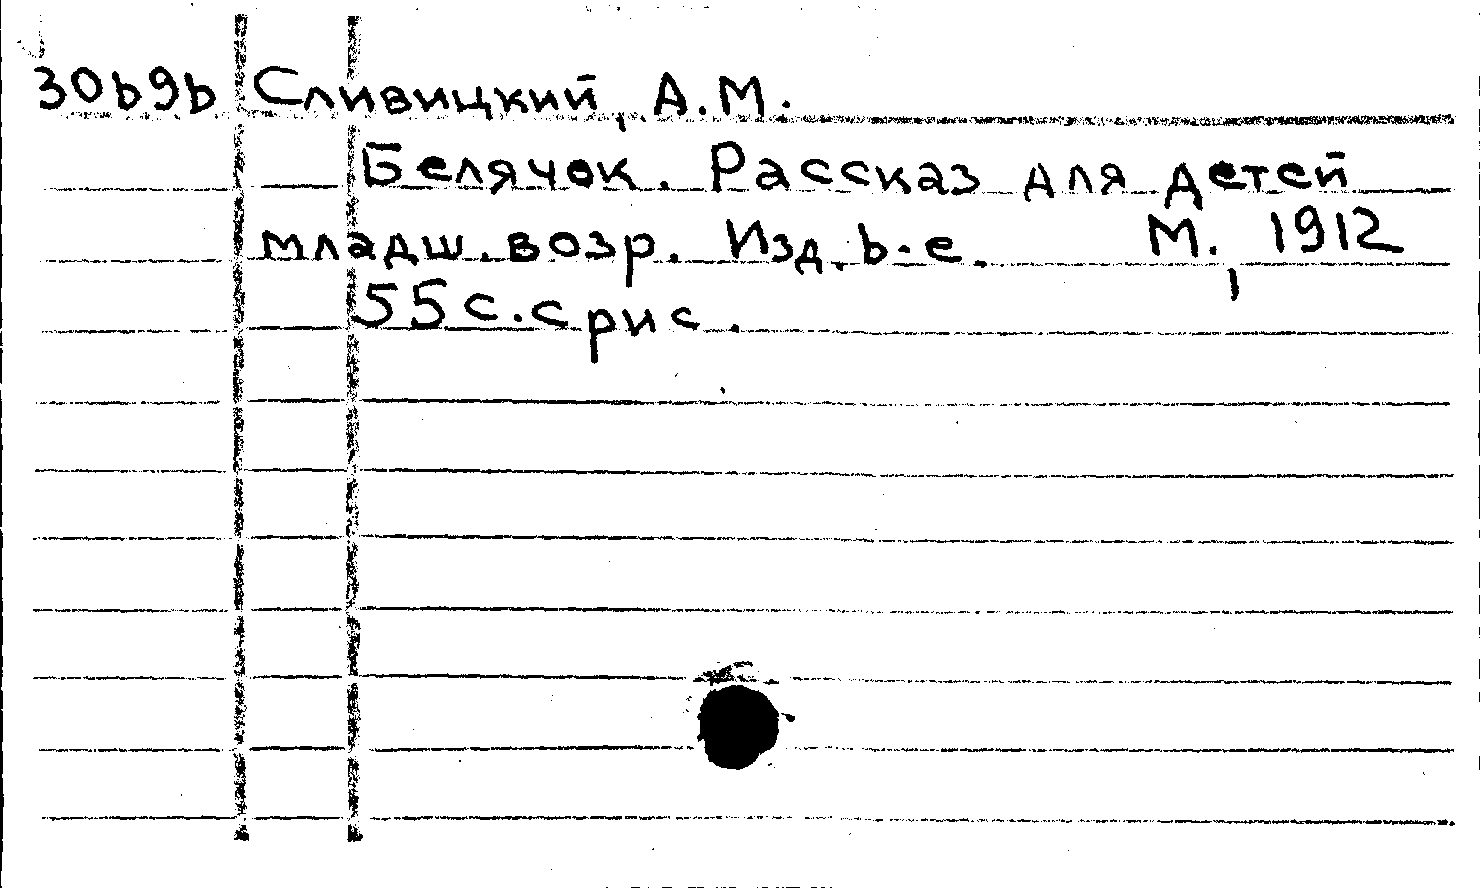 30696 Сливицкий, А.М.
Белячок. Рассказ для детей
младш. возр. Изд. 6-е. М., 1912
55 с. с рис.